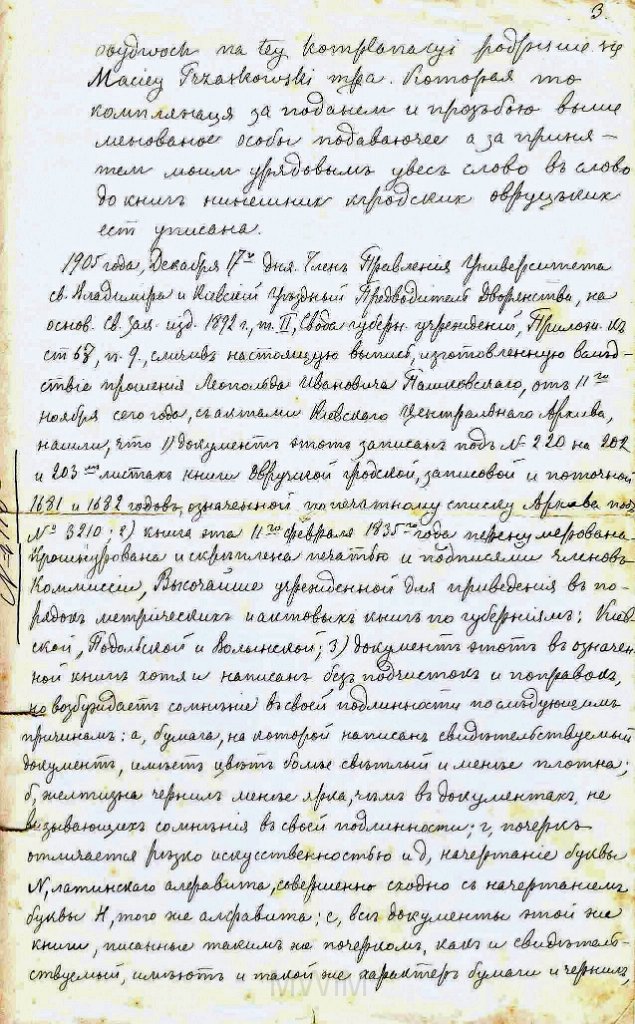 3.
obydwoch na tey komplanacyi podpisuie się
Maciey Trzaskowski mpa. Которая то
комплянацая за поданем и прозъбою выше
менованое особы подаваючее а за приня-
тем моим урядовымъ увесъ слово въ слово
до книгъ нинешних кгродских овруцъких
ест уписана.
1905 года, Декабря 17го дня. Членъ Правленія Университета
св. Владиміра и Кіевскій Уѣздный Предводитель Дворянства, на
основ. Св. Зак. изд. 1892 г., т. II, Свода губерн. учрежденій, Прилож. къ
ст , п. 9., сличивъ настоящую выпись, изготовленную вслѣд-
ствіе прошенія Леопольда Ивановича Пашковскаго, отъ 11го
ноября сего года, съ актами Кіевскаго Центральнаго Архива,
нашли, что 1) документъ этотъ записанъ подъ № 220 на 202
и 203 листахъ книги Овручской гродской, записовой и поточной
1681 и 1682 годовъ, означенной по печатному списку Архива подъ
№ 3210; 2) книга эта 11го февраля 1835го года перенумерована
прошнурована и скрѣплена печатью и подписями членовъ
Коммиссіи, Высочайше учрежденной для приведенія въ по-
рядокъ метрическихъ и актовыхъ книгъ по губерніямъ: Кіев-
ской, Подольской и Волынской; 3) документъ этотъ въ означен-
ной книгѣ хотя и написанъ безъ подчистокъ и поправокъ,
но возбуждаетъ сомнѣніе въ своей подлинности по слѣдующимъ
причинамъ: а, бумага, на которой написанъ свидѣтельствуемый
документъ, имѣетъ цвѣтъ болѣе свѣтлый и менѣе плотна;
б, желтизна чернилъ менѣе ярка, чѣмъ въ документахъ, не
вызывающихъ сомнѣнія въ своей подлинности; г, почеркъ
отличается рѣзко искусственностью и д, начертаніе буквы
N, латинскаго алфавита, совершенно сходно съ начертаніемъ
буквы H, того же алфавита; е, всѣ документы этой же
книги, писанные такимъ же почеркомъ, какъ и свидѣтель-
ствуемый, имѣютъ и такой же характеръ бумаги и чернилъ,
MVVIM